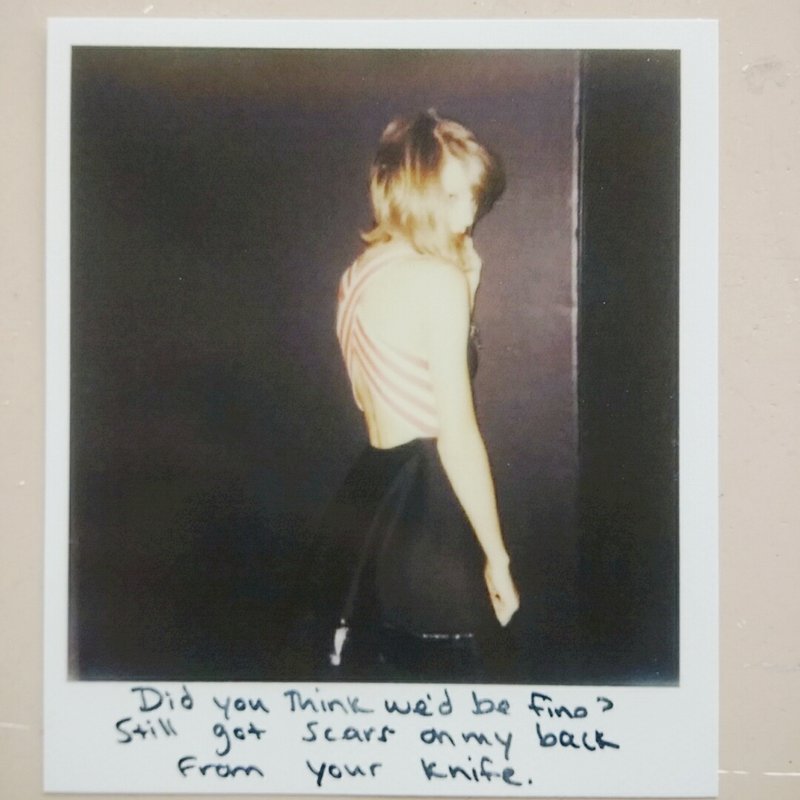 Did you Think we'd be fine?
Still got scars on my back
From your knife.